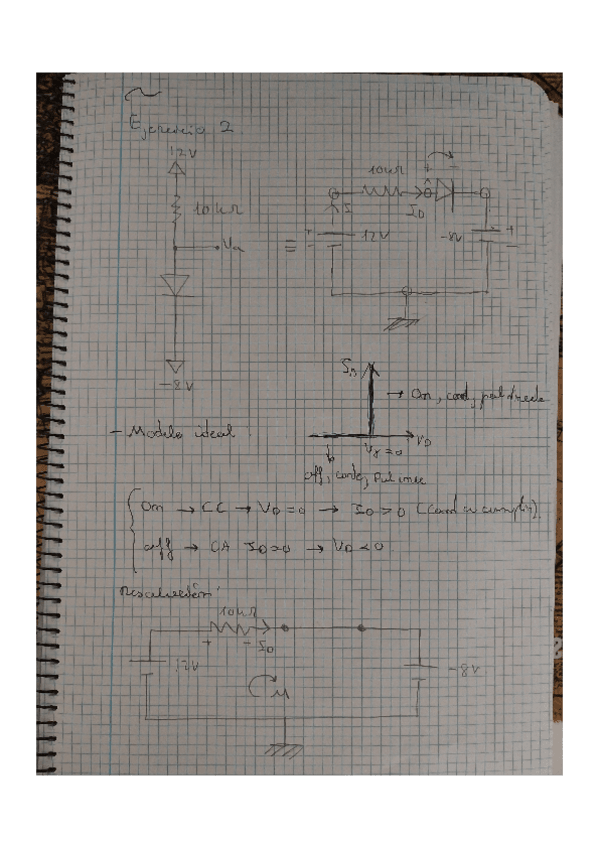 Ejercicio 2.
12V
10kΩ
Va
-8V
≡
10kΩ
+ -
I
ID
+ 12V -
-8V + -
ID
→ On, cond, polarizado
- Modelo ideal.
Vγ=0
VD
off, corte, pol inve
On → CC → VD=0 → ID>0 (Cond a cumplir).
off → CA ID=0 → VD<0
Resolución:
10kΩ
+ - ID
12V
-8V
M